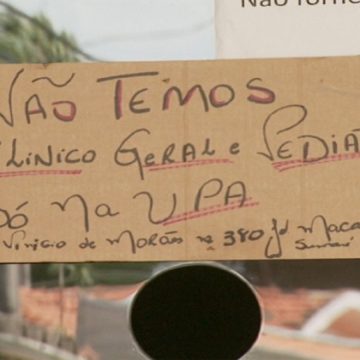 Não forne
NÃO TEMOS
CLINICO GERAL e PEDIA
SÓ NA UPA
Vinicio de Morães nº 380 Jd Maca